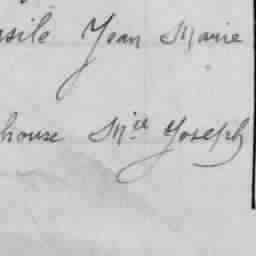 asile Jean Marie
house M^lle Joseph